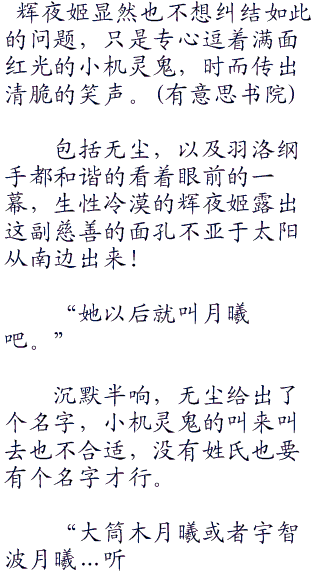 辉夜姬显然也不想纠结如此
的问题，只是专心逗着满面
红光的小机灵鬼，时而传出
清脆的笑声。(有意思书院)
包括无尘，以及羽洛纲
手都和谐的看着眼前的一
幕，生性冷漠的辉夜姬露出
这副慈善的面孔不亚于太阳
从南边出来！
“她以后就叫月曦
吧。”
沉默半响，无尘给出了
个名字，小机灵鬼的叫来叫
去也不合适，没有姓氏也要
有个名字才行。
“大筒木月曦或者宇智
波月曦…听